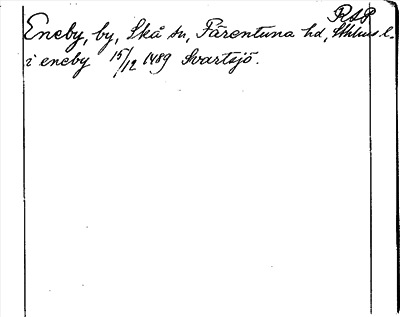 RAP
Eneby, by, Skå sn, Färentuna hd, Sthlms l.
i eneby 15/12 1489 Svartsjö.